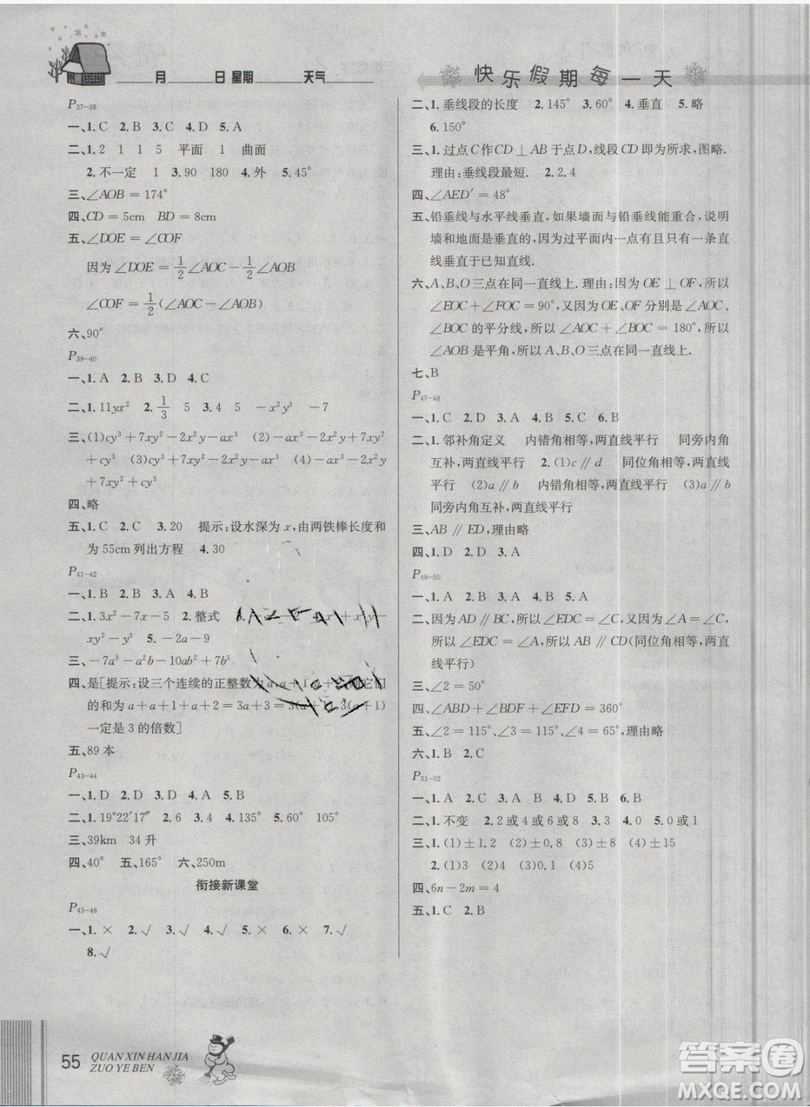 月 日 星期 天气
P37-38
一、1. C 2. B 3. C 4. D 5. A
二、1. 2 1 1 5 平面 1 曲面
2. 不一定 1 3. 90 180 4. 外 5. 48
三、∠AOB = 174°
四、CD = 5cm BD = 8cm
五、∠DOE = ∠COF
因为 ∠DOE = 1/2∠AOC − 1/2∠AOB
∠COF = 1/2(∠AOC − ∠AOB)
六、90°
P39-40
一、1. A 2. B 3. D 4. D
二、1. 11yx² 2. 1/3 5 3. 4 5 −5x² −7
三、(1)cy³ + 7xy² − 2x²y − ax³ (2) − ax³ −
2x²y + 7xy² + cy³ (3)cy³ + 7xy² − 2x²y − ax³
(4) − ax³ − 2x²y + 7xy² + cy³
四、略
五、1. C 2. C 3. 20 提示:设水深为 x,由两铁棒长度和
为 55cm 列出方程 4. 30
P41-42
一、1. A 2. B 3. A 4. C 5. B
二、1. 3x² − 7x − 5 2. 整式
xy² − y³ 5. − 2a − 9
三、− 7a³ − a²b − 10ab² + 7b³
四、是[提示:设三个连续的正整数为 a,a + 1,a + 2,则它们
的和为 a + a + 1 + a + 2 = 3a + 3 = 3(a + 1),3(a + 1)
一定是 3 的倍数]
五、89 本
P43-44
一、1. D 2. D 3. D 4. A 5. B 6. D
二、1. 19°22′17″ 2. 6 3. 2 4. 135° 5. 60°
三、39km 34 升
四、40° 五、165° 六、250m
衔接新课堂
P45-46
一、1. × 2. √ 3. √ 4. √ 5. × 6. × 7. √
8. √
快乐假期每一天
二、1. 垂线段的长度 2. 145° 3. 60° 4. 垂直 5. 略
6. 150°
三、1. 过点 C 作 CD ⊥ AB 于点 D,线段 CD 即为所求,图略.
理由:垂线段最短. 2. 2.4
四、∠AED′ = 48°
五、铅垂线与水平线垂直,如果墙面与铅垂线能重合,说明
墙和地面是垂直的,因为过平面内一点有且只有一条直
线垂直于已知直线.
六、A、B、O 三点在同一直线上. 理由:因为 OE ⊥ OF,所以
∠EOC + ∠FOC = 90°,又因为 OE、OF 分别是 ∠AOC、
∠BOC 的平分线,所以 ∠AOC + ∠BOC = 180°,所以
∠AOB 是平角,所以 A、B、O 三点在同一直线上.
七、B
P47-48
一、1. C 2. D 3. C 4. D 5. A
二、1. 邻补角定义 内错角相等,两直线平行 同旁内角
互补,两直线平行 2. (1)c ∥ d 同位角相等,两直线
平行 (2)a ∥ b 内错角相等,两直线平行 (3)a ∥ b
同旁内角互补,两直线平行
三、AB ∥ ED,理由略
四、1. D 2. B
P49-50
一、1. B 2. B 3. A 4. A 5. B 6. C
二、因为 AD ∥ BC,所以 ∠EDC = ∠C,又 ∠A = ∠C,
所以 ∠EDC = ∠A,所以 AB ∥ CD(同位角相等,两直
线平行)
三、∠2 = 50°
四、∠ABD + ∠BDF + ∠EFD = 360°
五、∠2 = 115°、∠3 = 65°、∠4 = 115°,理由略
六、1. B 2. C
P51-52
一、1. C 2. D 3. D 4. A 5. B 6. B
二、1. 不变 2. 2或4或6 3. 2或5 4. 0或1
三、1. (1) ± 1.2 (2) ± 0.8 (3) ± 4/3
2. (1)3 (2)4 (3)0.9 (4) ± 5
四、6n − 2m = 4
五、1. C 2. B
55 QUAN XIN HAN JIA
ZUO YE BEN
答案圈
MXQE.COM